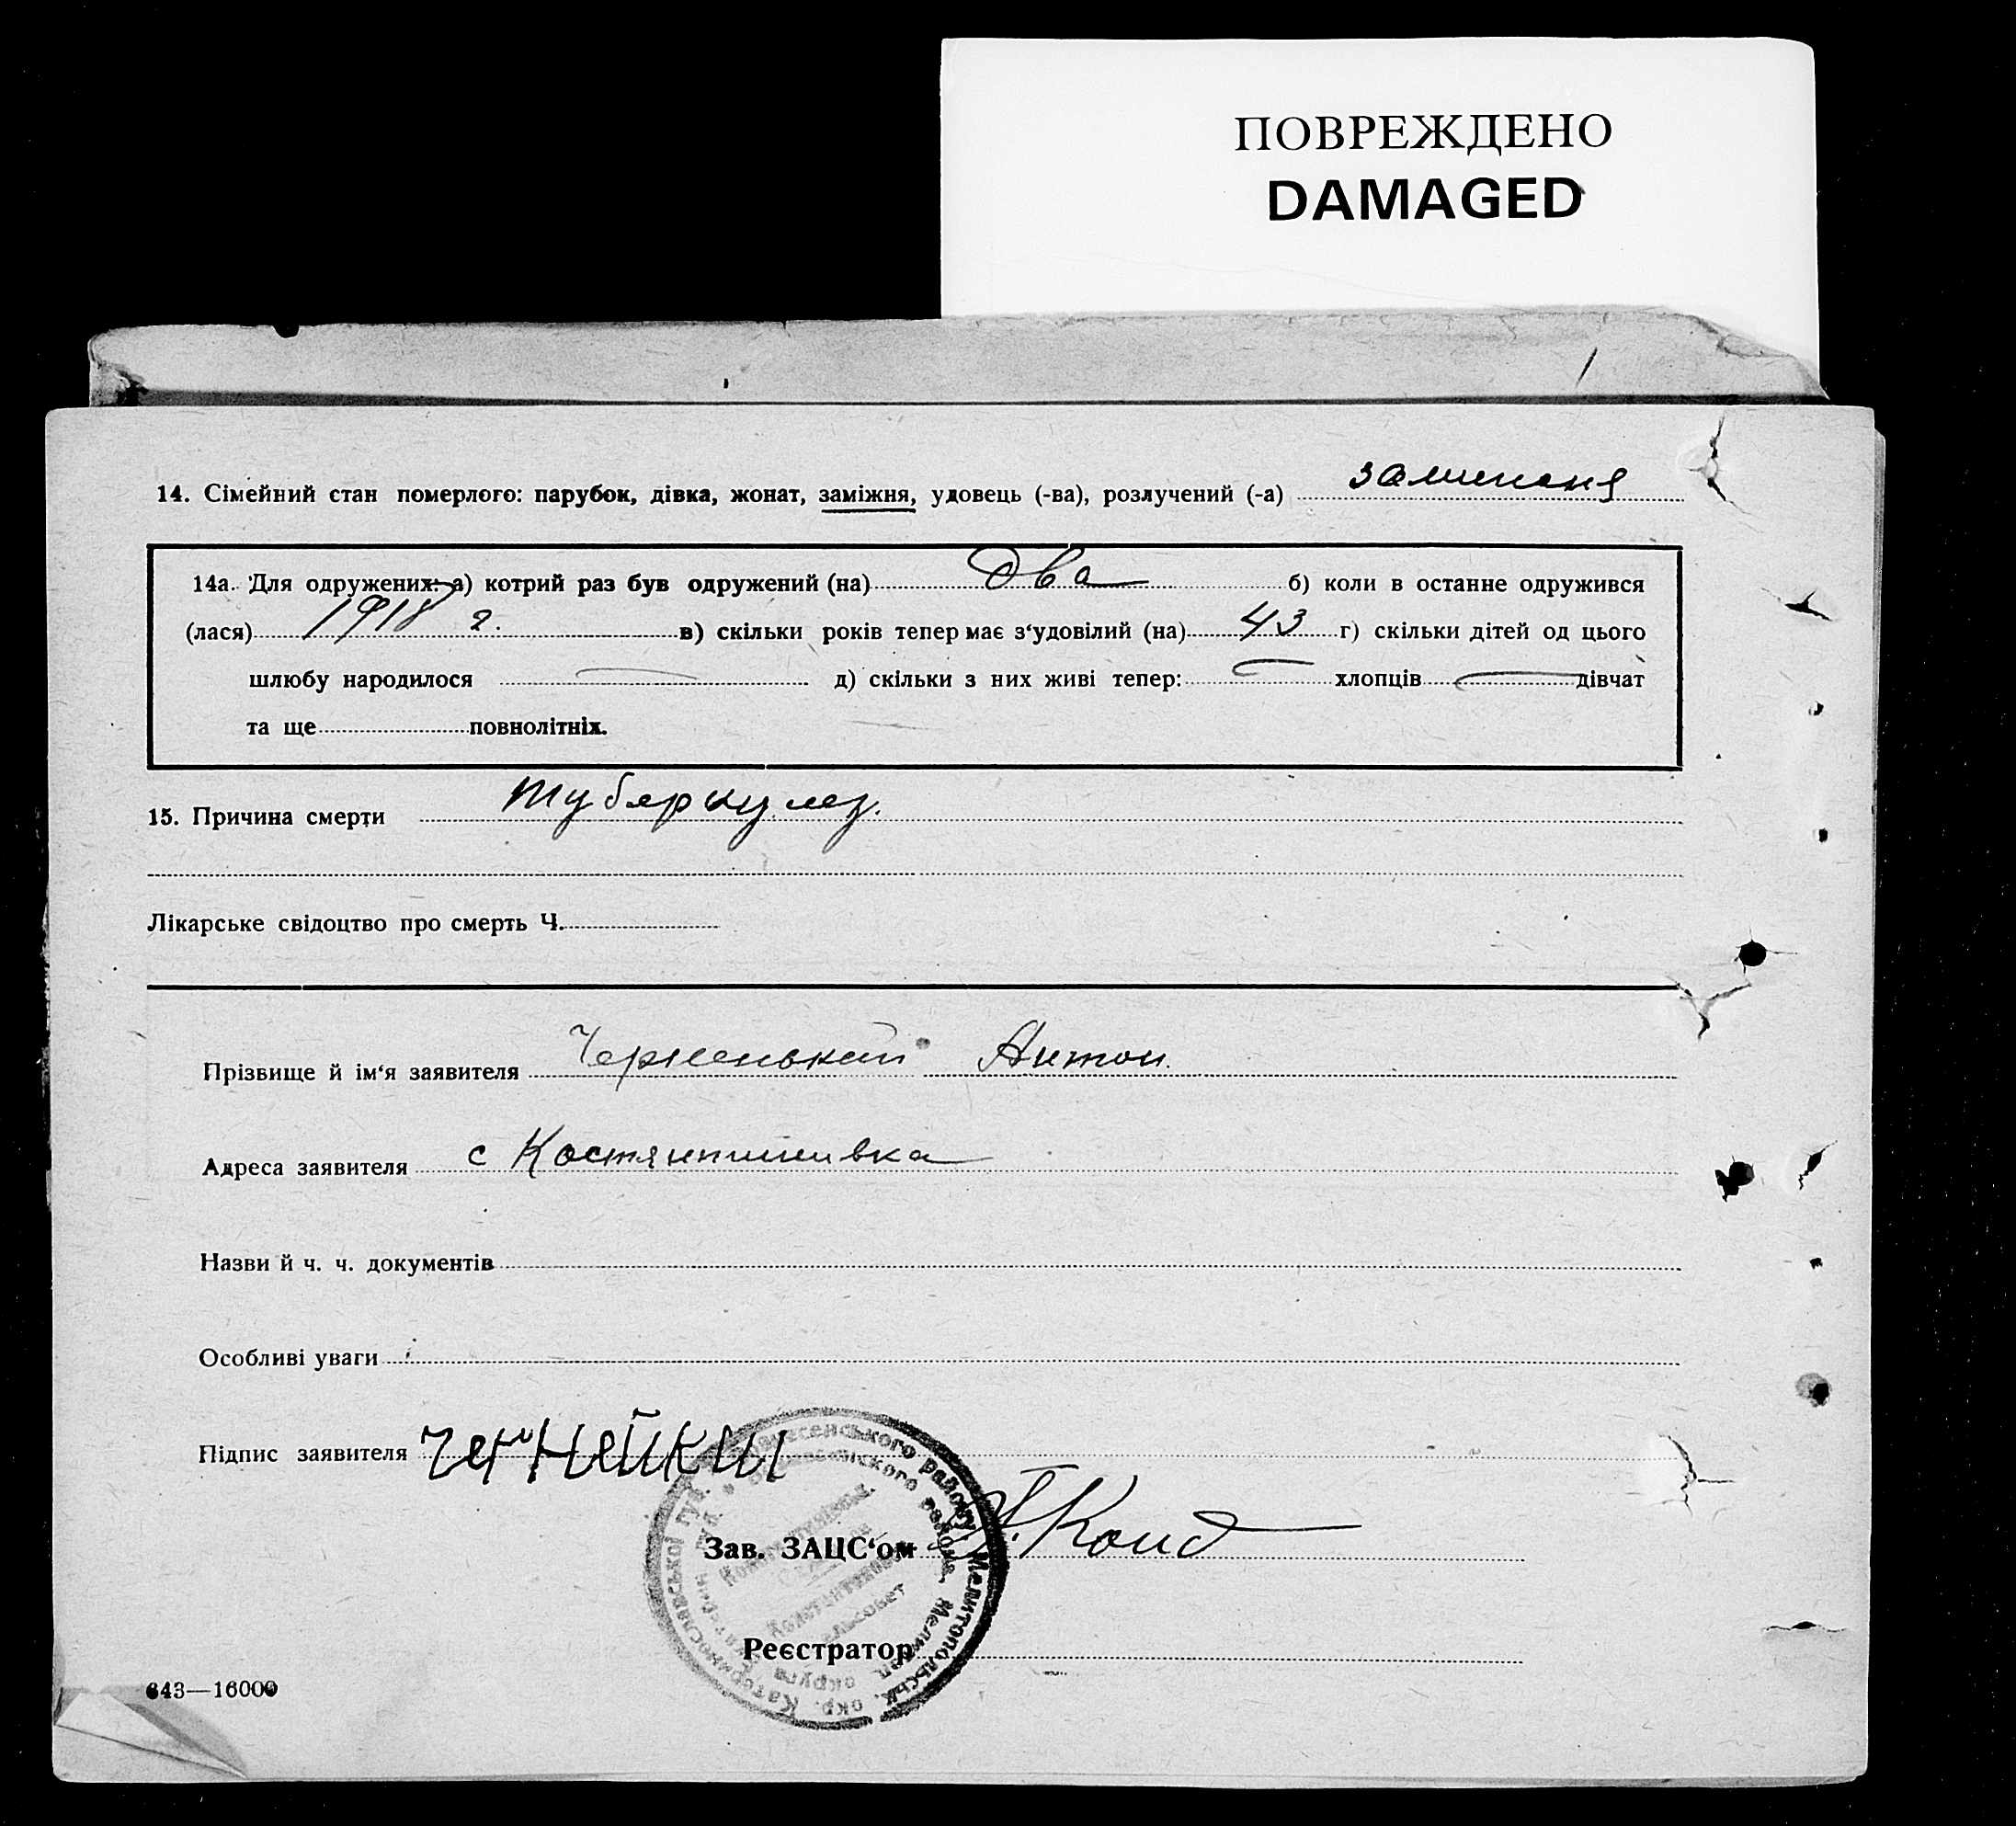 ПОВРЕЖДЕНО
DAMAGED
14. Сімейний стан померлого: парубок, дівка, жонат, заміжня, удовець (-ва), розлучений (-а)
14а. Для одружених: а) котрий раз був одружений (на) два б) коли в останне одружився
(лася) 1918 г. в) скільки років тепер має з‘удовілий (на) 43 г) скільки дітей од цього
шлюбу народилося — д) скільки з них живі тепер: — хлопців — дівчат
та ще повнолітніх.
15. Причина смерти туберкулез.
Лікарське свідоцтво про смерть Ч.
Прізвище й ім‘я заявителя Черненький Антон.
Адреса заявителя с Костянтинивка
Назви й ч. ч. документів
Особливі уваги
Підпис заявителя
Зав. ЗАЦС‘ом
Реєстратор
643—16000
Катеринославської губ. Вознесенського району Мелитопольськ. окр.